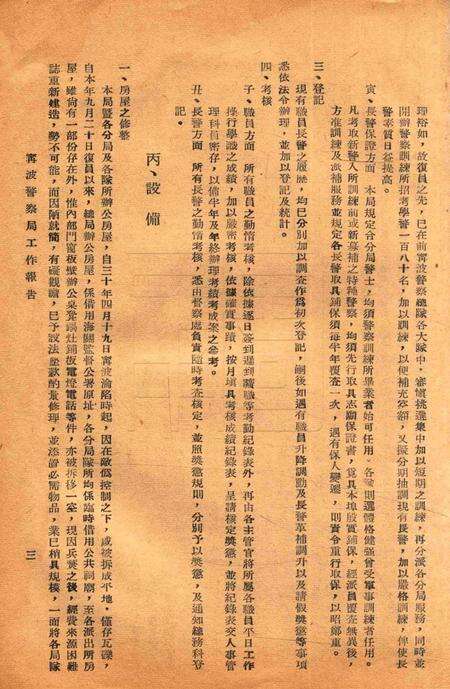 理裕如，故復員之先，已在前甯波警察總隊各大隊中，審愼挑選集中加以短期之訓練，再分派各分局服務，同時並
開辦警察訓練所招考學警一百八十名，加以訓練，以便補充空額，又擬分期抽調現有長警，加以嚴格訓練，俾使長
警素質日益提高。
寅、長警保證方面　本局規定各分局警士，均須警察訓練所畢業者始可任用。各隊則選體格健强曾受軍事訓練者任用。
凡考取新警入所訓練前或新募補之特種警察，均須先行取具志願保證書，覓具本埠殷實鋪保，經派員覆查無異後，
方准訓練及派補服務並規定各長警取具鋪保須每半年覆查一次，遇有保人變遷，則警令重行取保，以昭鄭重。
三、登記
現有職員長警之履歷，均已分別加以調查作爲初次登記，嗣後如遇有職員升降調動及長警革補調升以及請假獎懲等事項
悉依法令辦理，並加以登記及統計。
四、考核
子、職員方面　所有職員之勤惰考核，除依據逐日簽到遲到曠職等考勤紀錄表外，再由各主管官將所屬各職員平日工作
操行學識之成績，加以嚴密考核，依據確實事蹟，按月塡具考核成績紀錄表，呈請核定獎懲，並將紀錄表交人事管
理科員密存，以備半年及年終辦理考績考成案之參考。
丑、長警方面　所有長警之勤惰考核，悉由督察處負責隨時考查核定，並照獎懲規則，分別予以獎懲，及通知總務科登
記。
丙、設備
一、房屋之修整
本局暨各分局及各隊所辦公房屋，自三十年四月十九日甯波淪陷時起，因在敵僞控制之下，咸被拆成平地，僅存瓦礫，
自本年九月二十日復員以來，總局辦公房屋，係借用海關監督公署原址，各分局隊所均係臨時借用公共祠廟，至各派出所房
屋，雖尙有一部份存在外，惟內部門窗板壁辦公桌凳鍋灶鋪板電燈電話等件，亦被拆移一空，現因兵燹之後，經費來源困難
誌重新建造，勢不可能，而因陋就簡，有礙觀瞻，已予設法籌款酌量修理，並添辦必需物品，業已稍具規模，一面將各局隊
甯波警察局工作報告
三